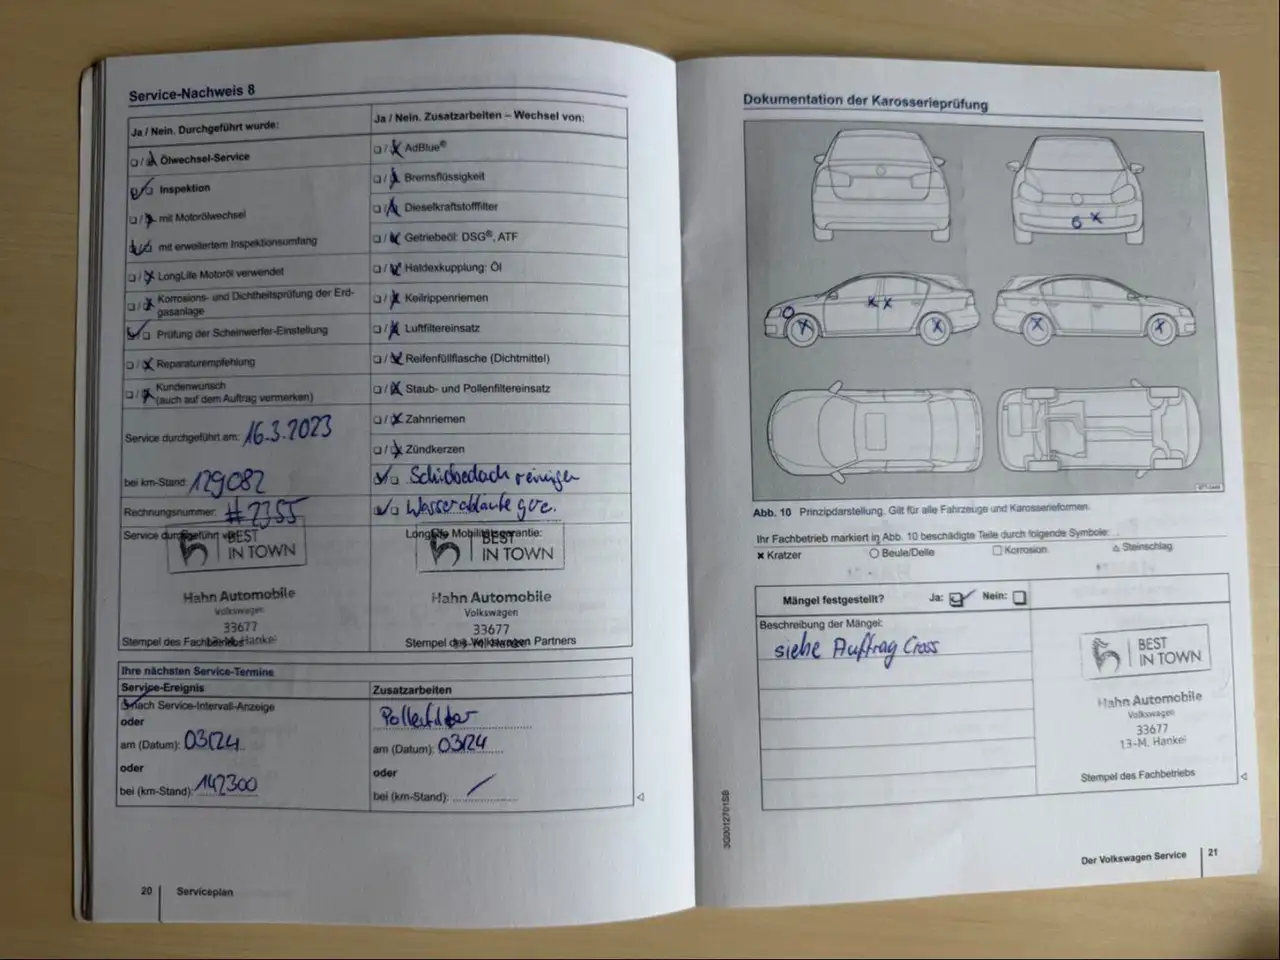 Service-Nachweis 8
Ja / Nein. Durchgeführt wurde:
Ölwechsel-Service
Inspektion
mit Motorölwechsel
mit erweitertem Inspektionsumfang
LongLife Motoröl verwendet
Korrosions- und Dichtheitsprüfung der Erd-
gasanlage
Prüfung der Scheinwerfer-Einstellung
Reparaturempfehlung
Kundenwunsch
(auch auf dem Auftrag vermerken)
Service durchgeführt am: 16.3.2023
bei km-Stand: 129082
Rechnungsnummer: #2355
Service durchgeführt
BEST
IN TOWN
Hahn Automobile
Volkswagen
33677
13-M. Hankel
Stempel des Fachbetriebs
Ja / Nein. Zusatzarbeiten – Wechsel von:
AdBlue®
Bremsflüssigkeit
Dieselkraftstofffilter
Getriebeöl: DSG®, ATF
Haldexkupplung: Öl
Keilrippenriemen
Luftfiltereinsatz
Reifenfüllflasche (Dichtmittel)
Staub- und Pollenfiltereinsatz
Zahnriemen
Zündkerzen
Schiebedach reinigen
Wasserabläufe
LongLife Mobilitätsgarantie:
BEST
IN TOWN
Hahn Automobile
Volkswagen
33677
13-M. Hankel
Stempel des Volkswagen Partners
Ihre nächsten Service-Termine
Service-Ereignis
nach Service-Intervall-Anzeige
oder
am (Datum): 03/24
oder
bei (km-Stand): 142300
Zusatzarbeiten
Pollenfilter
am (Datum): 03/24
oder
bei (km-Stand):
20 Serviceplan
Dokumentation der Karosserieprüfung
Abb. 10 Prinzipdarstellung. Gilt für alle Fahrzeuge und Karosserieformen.
Ihr Fachbetrieb markiert in Abb. 10 beschädigte Teile durch folgende Symbole:
Kratzer Beule/Delle Korrosion Steinschlag
Mängel festgestellt? Ja: Nein:
Beschreibung der Mängel:
siehe Auftrag Cross
BEST
IN TOWN
Hahn Automobile
Volkswagen
33677
13-M. Hankel
Stempel des Fachbetriebs
3G0012701SB
Der Volkswagen Service 21